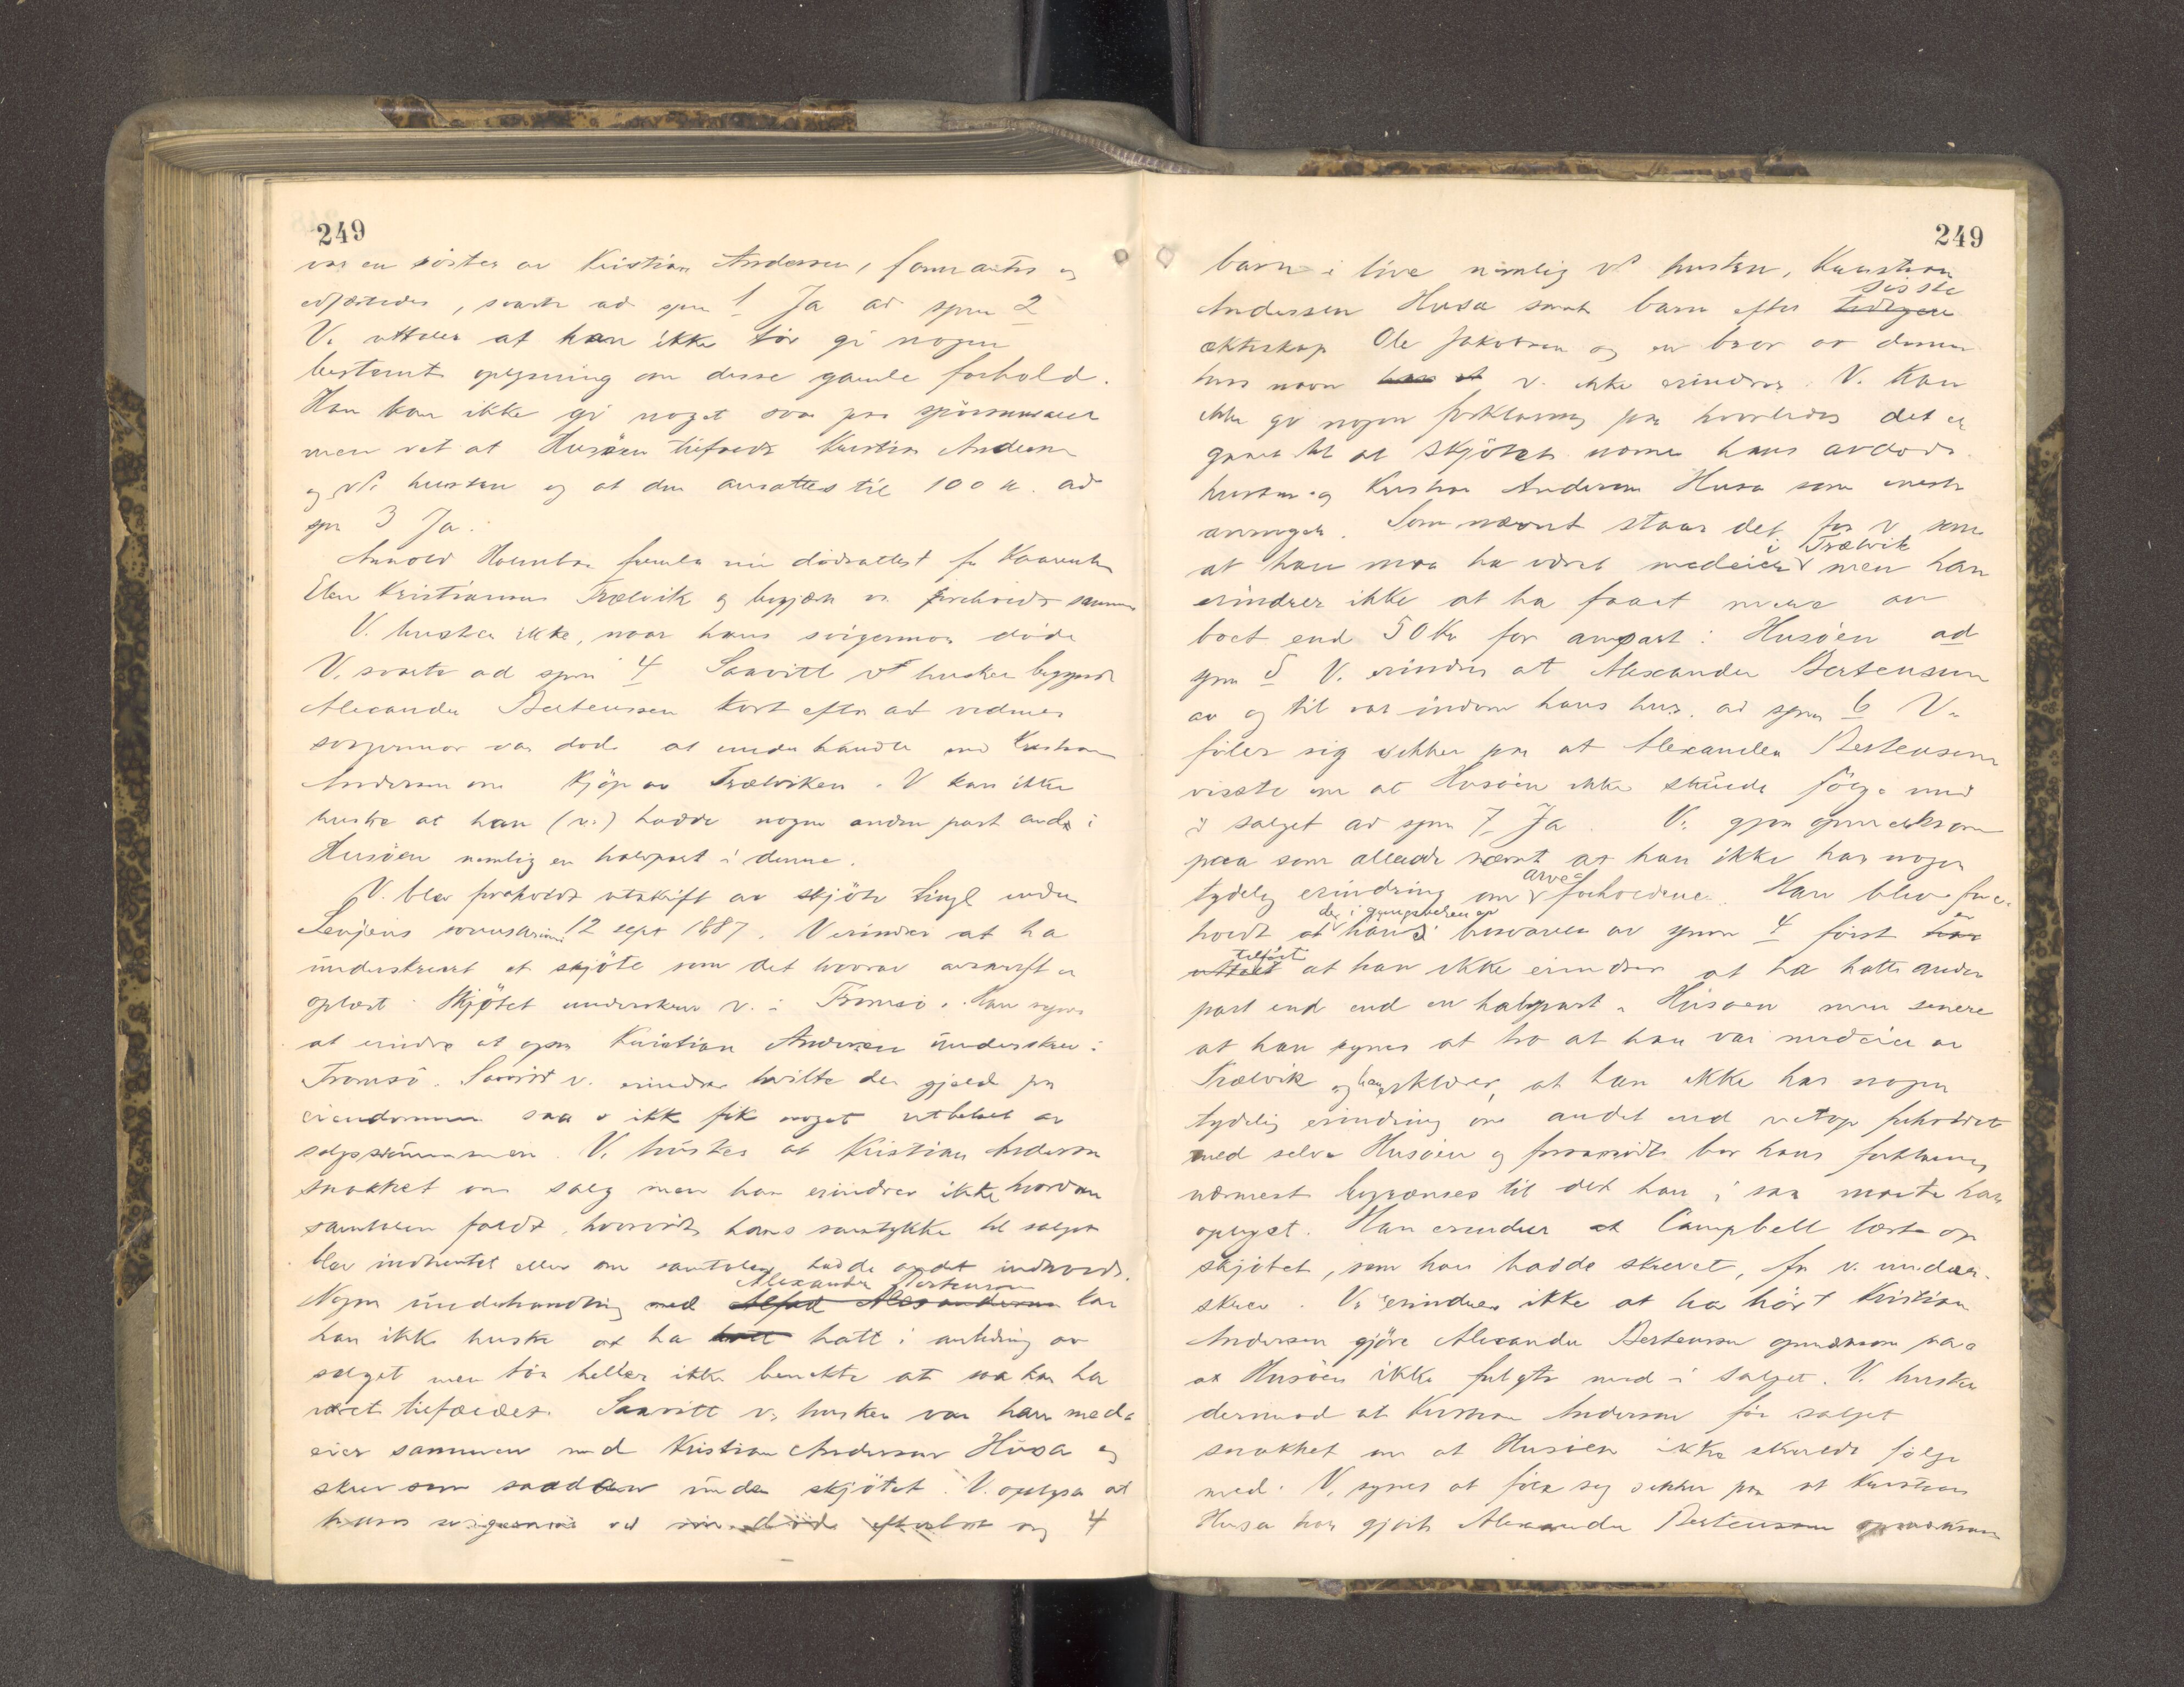 249
var en söster av Kristian Andersen, formantes og
edfæstedes, svarte ad spm 1 Ja ad spm 2
V. uttaler at han ikke tör gi nogen
bestemt oplysning om disse gamle forhold.
Han kan ikke gi noget svar paa spörsmaalet
men vet at Husöen tilfaldt Kristian Andersen
og V's hustru og at den ansattes til 100 kr. ad
spm 3 Ja.
Arnold Holmboe fremla nu dödsattest for
Elen Kristianna Trælvik og begjærte v. foreholdt samme
V. husker ikke, naar hans svigermor döde
V. svarte ad spm 4 Saavitt v. husker begyndte
Alexander Bertensen kort efter at vedkes
svigermor var död at underhandle med Kristian
Andersen om kjöp av Trælviken. V kan ikke
huske at han (v.) hadde nogen anden part end i
Husöen nemlig en halvpart i denne.
V. blev foreholdt utskrift av skjöte tingl. under
Senjens sorenskriveri 12 sept 1887. V erindrer at ha
underskrevet et skjöte som det hvorav avskrift er
oplæst. Skjötet underskrev v. i Tromsö. Han synes
at erindre at ogsaa Kristian Andersen underskrev i
Tromsö. Saavidt v. erindrer hvilte der gjæld paa
eiendommen saa v ikke fik noget utbetalt av
salgssummen. V. husker at Kristian Andersen
snakket om salg men han erindrer ikke hvordan
samtalen faldt, hvorvidt hans samtykke til salget
blev indhentet eller om samtalen hadde andet indhold.
Nogen underhandling med Alexander Bertensen kan
han ikke huske at ha hatt i anledning av
salget men tör heller ikke benekte at saa kan ha
været tilfældet. Saavitt v. husker var han med-
eier sammen med Kristian Andersen Husa og
skrev som saadan under skjötet. V. oplyser at
hans svigermor ved sin död efterlot sig 4
249
barn i live nemlig v's hustru, Kristian
Andersen Husa samt barn efter sisste
ekteskap Ole Jakobsen og en bror av denne
hvis navn v. ikke erindrer. V. kan
ikke gi nogen forklaring paa hvorledes det er
gaaet til at skjötet nævner hans avdöde
hustru og Kristian Andersen Husa som eneste
arvinger. Som nævnt staar det for v. som
at han maa ha været medeier i Trælvik men han
erindrer ikke at ha faaet mere av
boet end 50 kr for anpart i Husöen ad
spm 5 V. erindrer at Alexander Bertensen
av og til var indom hans hus. ad spm 6 V.
föler sig sikker paa at Alexander Bertensen
visste om at Husöen ikke skulde fölge med
i salget ad spm 7 Ja. V. gjör opmerksom
paa som allerede nævnt at han ikke har nogen
tydelig erindring om arveforholdene. Han blev fore-
holdt at der i gjengivelsen av hans besvarelse av spm 4 först er
tilfört at han ikke erindrer at ha hatt anden
part end end en halvpart i Husöen men senere
at han synes at tro at han var medeier av
Trælvik og han erklærer, at han ikke har nogen
tydelig erindring om andet end netop forholdet
med selve Husöen og forsaavidt bör hans forklaring
nærmest begrænses til det han i saa maate har
oplyst. Han erindrer at Campbell læste op
skjötet, som han hadde skrevet, för v. under-
skrev. V. erindrer ikke at ha hört Kristian
Andersen gjöre Alexander Bertensen opmerksom paa
at Husöen ikke fulgte med i salget. V. husker
derimod at Kristian Andersen för salget
snakket om at Husöen ikke skulde fölge
med. V. synes at föle sig sikker paa at Kristian
Husa har gjort Alexander Bertensen opmerksom